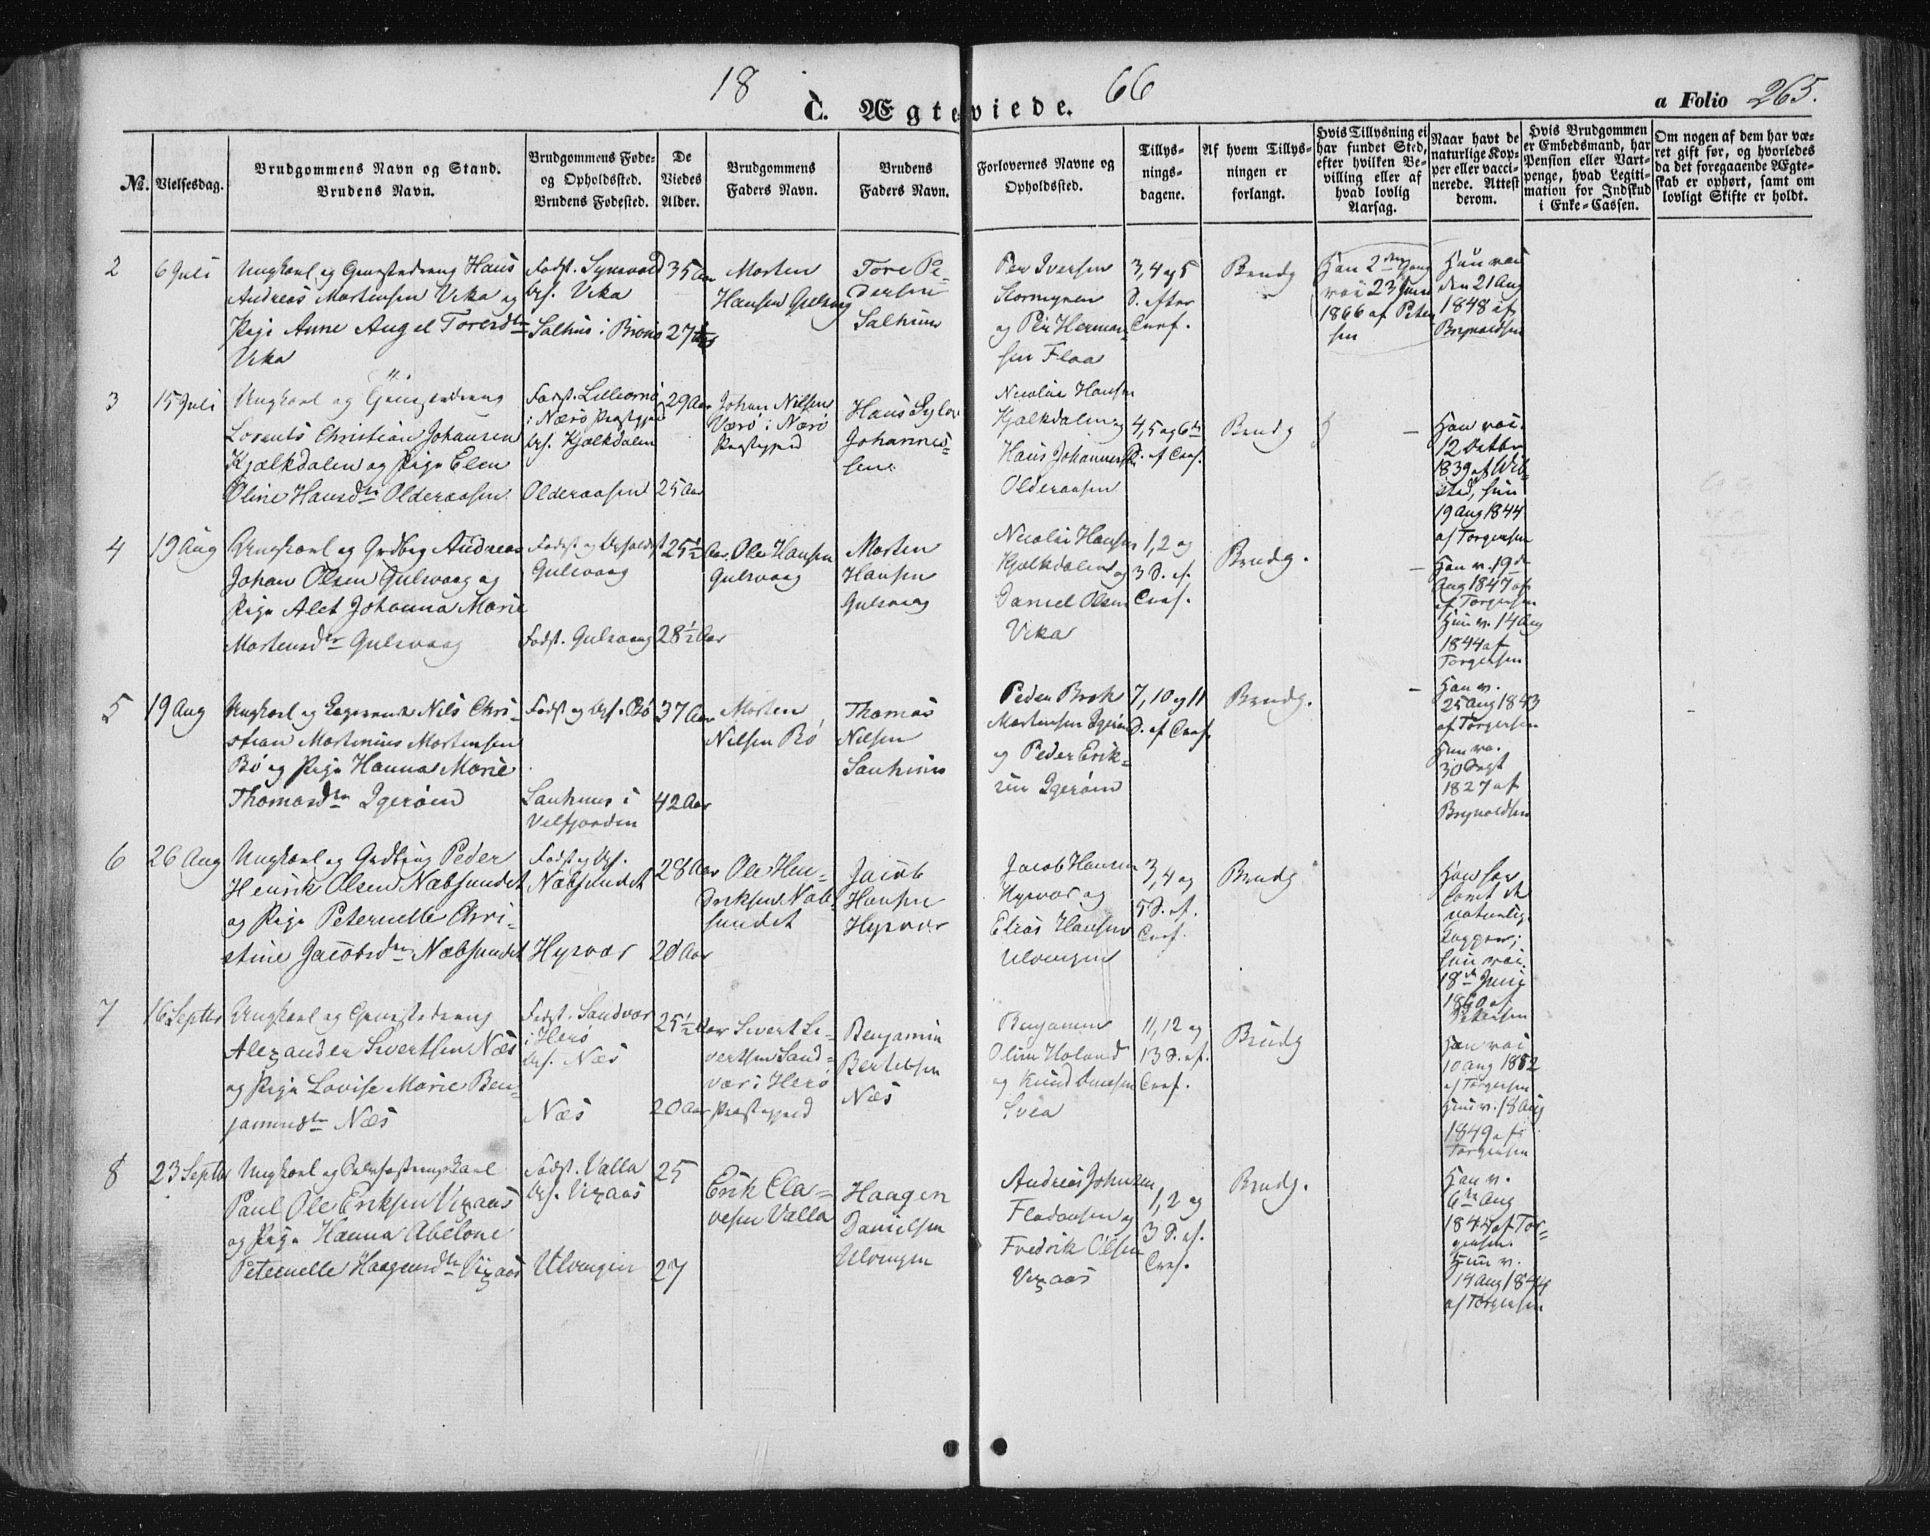 18 66
C. Ægteviede.
a Folio 265.
No.
Vielsesdag.
Brudgommens Navn og Stand.
Brudens Navn.
Brudgommens Føde-
og Opholdssted.
Brudens Fødested.
De
Viedes
Alder.
Brudgommens
Faders Navn.
Brudens
Faders Navn.
Forlovernes Navne og
Opholdssted.
Tillys-
nings-
dagene.
Af hvem Tillys-
ningen er
forlangt.
Hvis Tillysning ei
har fundet Sted,
efter hvilken Be-
villing eller af
hvad lovlig
Aarsag.
Naar havt de
naturlige Kop-
per eller vacci-
nerede. Attest
derom.
Hvis Brudgommen
er Embedsmand, har
Pension eller Vart-
penge, hvad Legiti-
mation for Indskud
i Enke-Cassen.
Om nogen af dem har væ-
ret gift før, og hvorledes
da det foregaaende Ægte-
skab er ophørt, samt om
lovligt Skifte er holdt.
2
6 Juli
Ungkarl og Hans
Andreas Mortensen Vika og
Pige Anne Angel Toresdtr
Vika
Født.
bs. Vika
Salhus i Brønø
35 Aar
27
Morten
Hansen
Tore Pe-
dersen
Salhuus
Per Iversen
Stormyren
og Per Herman-
sen Floa
3, 4 og 5
S. efter
Brudg
Han 2den Gang
vac 23 Juni
1866 af Peter
sen
Hun vac
den 21 Aug
1848 af
Brynoldsen
3
15 Juli
Ungkarl og
Lorents Christian Johansen
Kjælkdalen og Pige Elen
Oline Hansdtr Olderaasen
Født.
i Nærø Præstegjeld
bs. Kjelkdalen
Olderaasen
29 Aar
25 Aar
Johan Nilsen
Værø i Nærø
Præstegjeld
Hans
Johannes-
sen
Nicolai Hansen
Kjælkdalen og
Hans Johannessen
Olderaasen
4, 5 og 6te
S. ef
Brudg
Han vac.
12 Octbr
1839 af Wib
sted, hun
19 Aug 1844
af Torgersen
4
19 Aug
Ungkarl og Grdbrg Andreas
Johan Olsen Gulsvaag og
Pige Alet Johanna Marie
Mortensdtr Gulsvaag
Født og
Gulsvaag
Født. Gulsvaag
25½ Aar
28½ Aar
Ole Hansen
Gulsvaag
Morten
Hansen
Gulsvaag
Nicolai Hansen
Kjælkdalen og
Daniel Olsen
Vika
1, 2 og
3 S. ef.
Brudg.
Han v. 19de
Aug 1847 af
af Torgersen
Hun v. 14 Aug
1844 af
Torgersen
5
19 Aug
Ungkarl og Nils Chri-
stian Martinius Mortensen
Bø og Pige Hanna Marie
Thomasdtr Igerøen
Født og bs. Bø
Sauhuus i
Velfjorden
37 Aar
42 Aar
Morten
Nilsen Bø
Thomas
Nilsen
Sauhuus
Peder Brok
Mortensen Igerøen
og Peder Erik-
sen Igerøen
7, 10 og 11
S. ef
Brudg.
Han v.
25 Aug 1843
af Torgersen
Hun va.
30 Sept
1827 af
Brynoldsen
6
26 Aug
Ungkarl og Peder
Henrik Olsen Næbsundet
og Pige Peternelle Chri-
stine Jacobsdtr Næbsundet
Født og bs.
Næbsundet
Hysvær
28 Aar
20 Aar
Ole Hen-
driksen Næb-
sundet
Jacob
Hansen
Hysvær
Jacob Hansen
Hysvær og
Elias Hansen
Ulvingen
3, 4 og
5 S. ef.
Brudg
Han har
havt de
naturlig.
Kopper;
hun vac.
18de Juni
1860 af
Petersen
7
16 Septbr
Ungkarl og
Alexander Sivertsen Næs
og Pige Lovise Marie Ben-
jaminsdtr Næs
Født. Sandvær
i Herø
bs. Næs
Næs
25½ Aar
20 Aar
Sivert Si-
vertsen Sand-
vær i Herø
Præstegjeld
Benjamin
Bertelsen
Næs
Benjamin
Olsen Holand
og Knud
Svea
11, 12 og
13 S. ef.
Brudg
Han vac
10 Aug 1852
af Torgersen
Hun v. 18 Aug
1849 af
Torgersen
8
23 Septbr
Ungkarl og
Paul Ole Eriksen Vixaas
og Pige Hanna Abelone
Peternelle Haagensdtr Vixaas
Født. Valla
bs. Vixaas
Ulvingen
25
27
Erik Cla-
vesen Valla
Haagen
Danielsen
Ulvingen
Andreas Johnsen
og
Fredrik Olsen
Vixaas
1, 2 og
3 S. ef.
Brudg.
Han v.
6te Aug
1844 af Tor-
gersen.
Hun v.
14 Aug 1844
af Torgersen